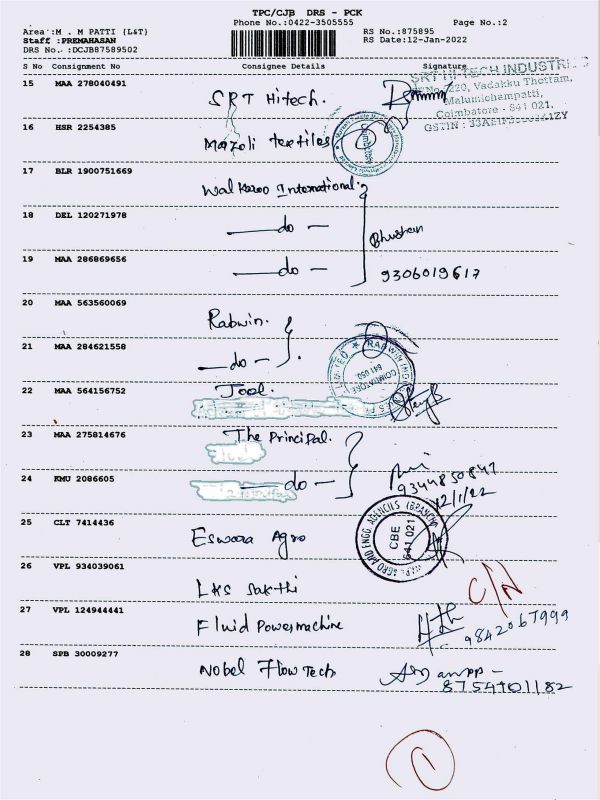 TPC/CJB DRS - PCK
Phone No.:0422-3505555 Page No.:2
Area :M . M PATTI (L&T) RS No.:875895
Staff :PREMAHASAN RS Date:12-Jan-2022
DRS No. :DCJB87589502
S No Consignment No Consignee Details Signature
15 MAA 278040491 SRT Hitech.
SRT HI-TECH INDUSTRIES
220, Vadakku Thottam,
Malumichampatti,
Coimbatore - 641 021.
GSTIN :
16 HSR 2254385 Mazoli textiles
17 BLR 1900751669 Wal Karoo International
18 DEL 120271978 do
Bhushan
19 MAA 286869656 do 9306019617
20 MAA 563560069 Rabwin.
21 MAA 284621558 do
LIMITED ★ RABWIN
COIMBATORE
641 050
22 MAA 564156752 Jool.
23 MAA 275814676 The Principal.
24 KMU 2086605 do 9344850847
12/1/22
25 CLT 7414436 Eswara Agro
AGRO AND ENGG AGENCIES (BRANCH)
CBE
641 021
26 VPL 934039061 LKS Sakthi C/N
27 VPL 124944441 Fluid Powermachine 9842067999
28 SPB 30009277 Nobel Flow Tech 8754401182
1